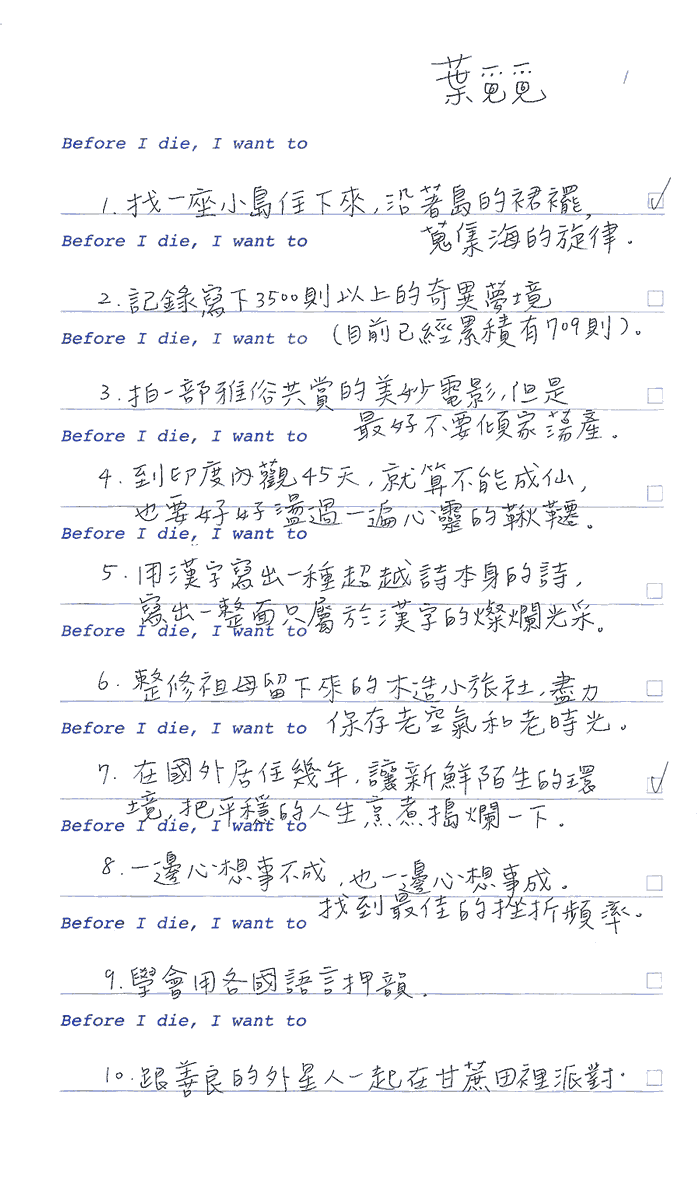 葉覓覓
1
Before I die, I want to
1. 找一座小島住下來，沿著島的裙襬，
Before I die, I want to
蒐集海的旋律。
2. 記錄寫下3500則以上的奇異夢境
Before I die, I want to
(目前已經累積有709則)。
3. 拍一部雅俗共賞的美妙電影，但是
Before I die, I want to
最好不要傾家蕩產。
4. 到印度內觀45天，就算不能成仙，
也要好好盪過一遍心靈的鞦韆。
Before I die, I want to
5. 用漢字寫出一種超越詩本身的詩，
寫出一整面只屬於漢字的燦爛光采。
Before I die, I want to
6. 整修祖母留下來的木造小旅社，盡力
Before I die, I want to
保存老空氣和老時光。
7. 在國外居住幾年，讓新鮮陌生的環
境，把平穩的人生烹煮搗爛一下。
Before I die, I want to
8. 一邊心想事不成，也一邊心想事成。
找到最佳的挫折頻率。
Before I die, I want to
9. 學會用各國語言押韻。
Before I die, I want to
10. 跟善良的外星人一起在甘蔗田裡派對．